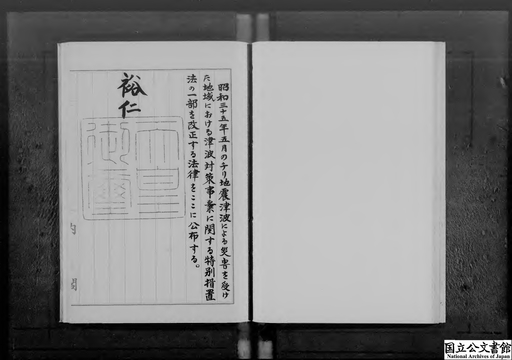 昭和三十五年五月のチリ地震津波による災害を受け
た地域における津波対策事業に関する特別措置
法の一部を改正する法律をここに公布する。
裕仁
天皇
御璽
国立公文書館
National Archives of Japan